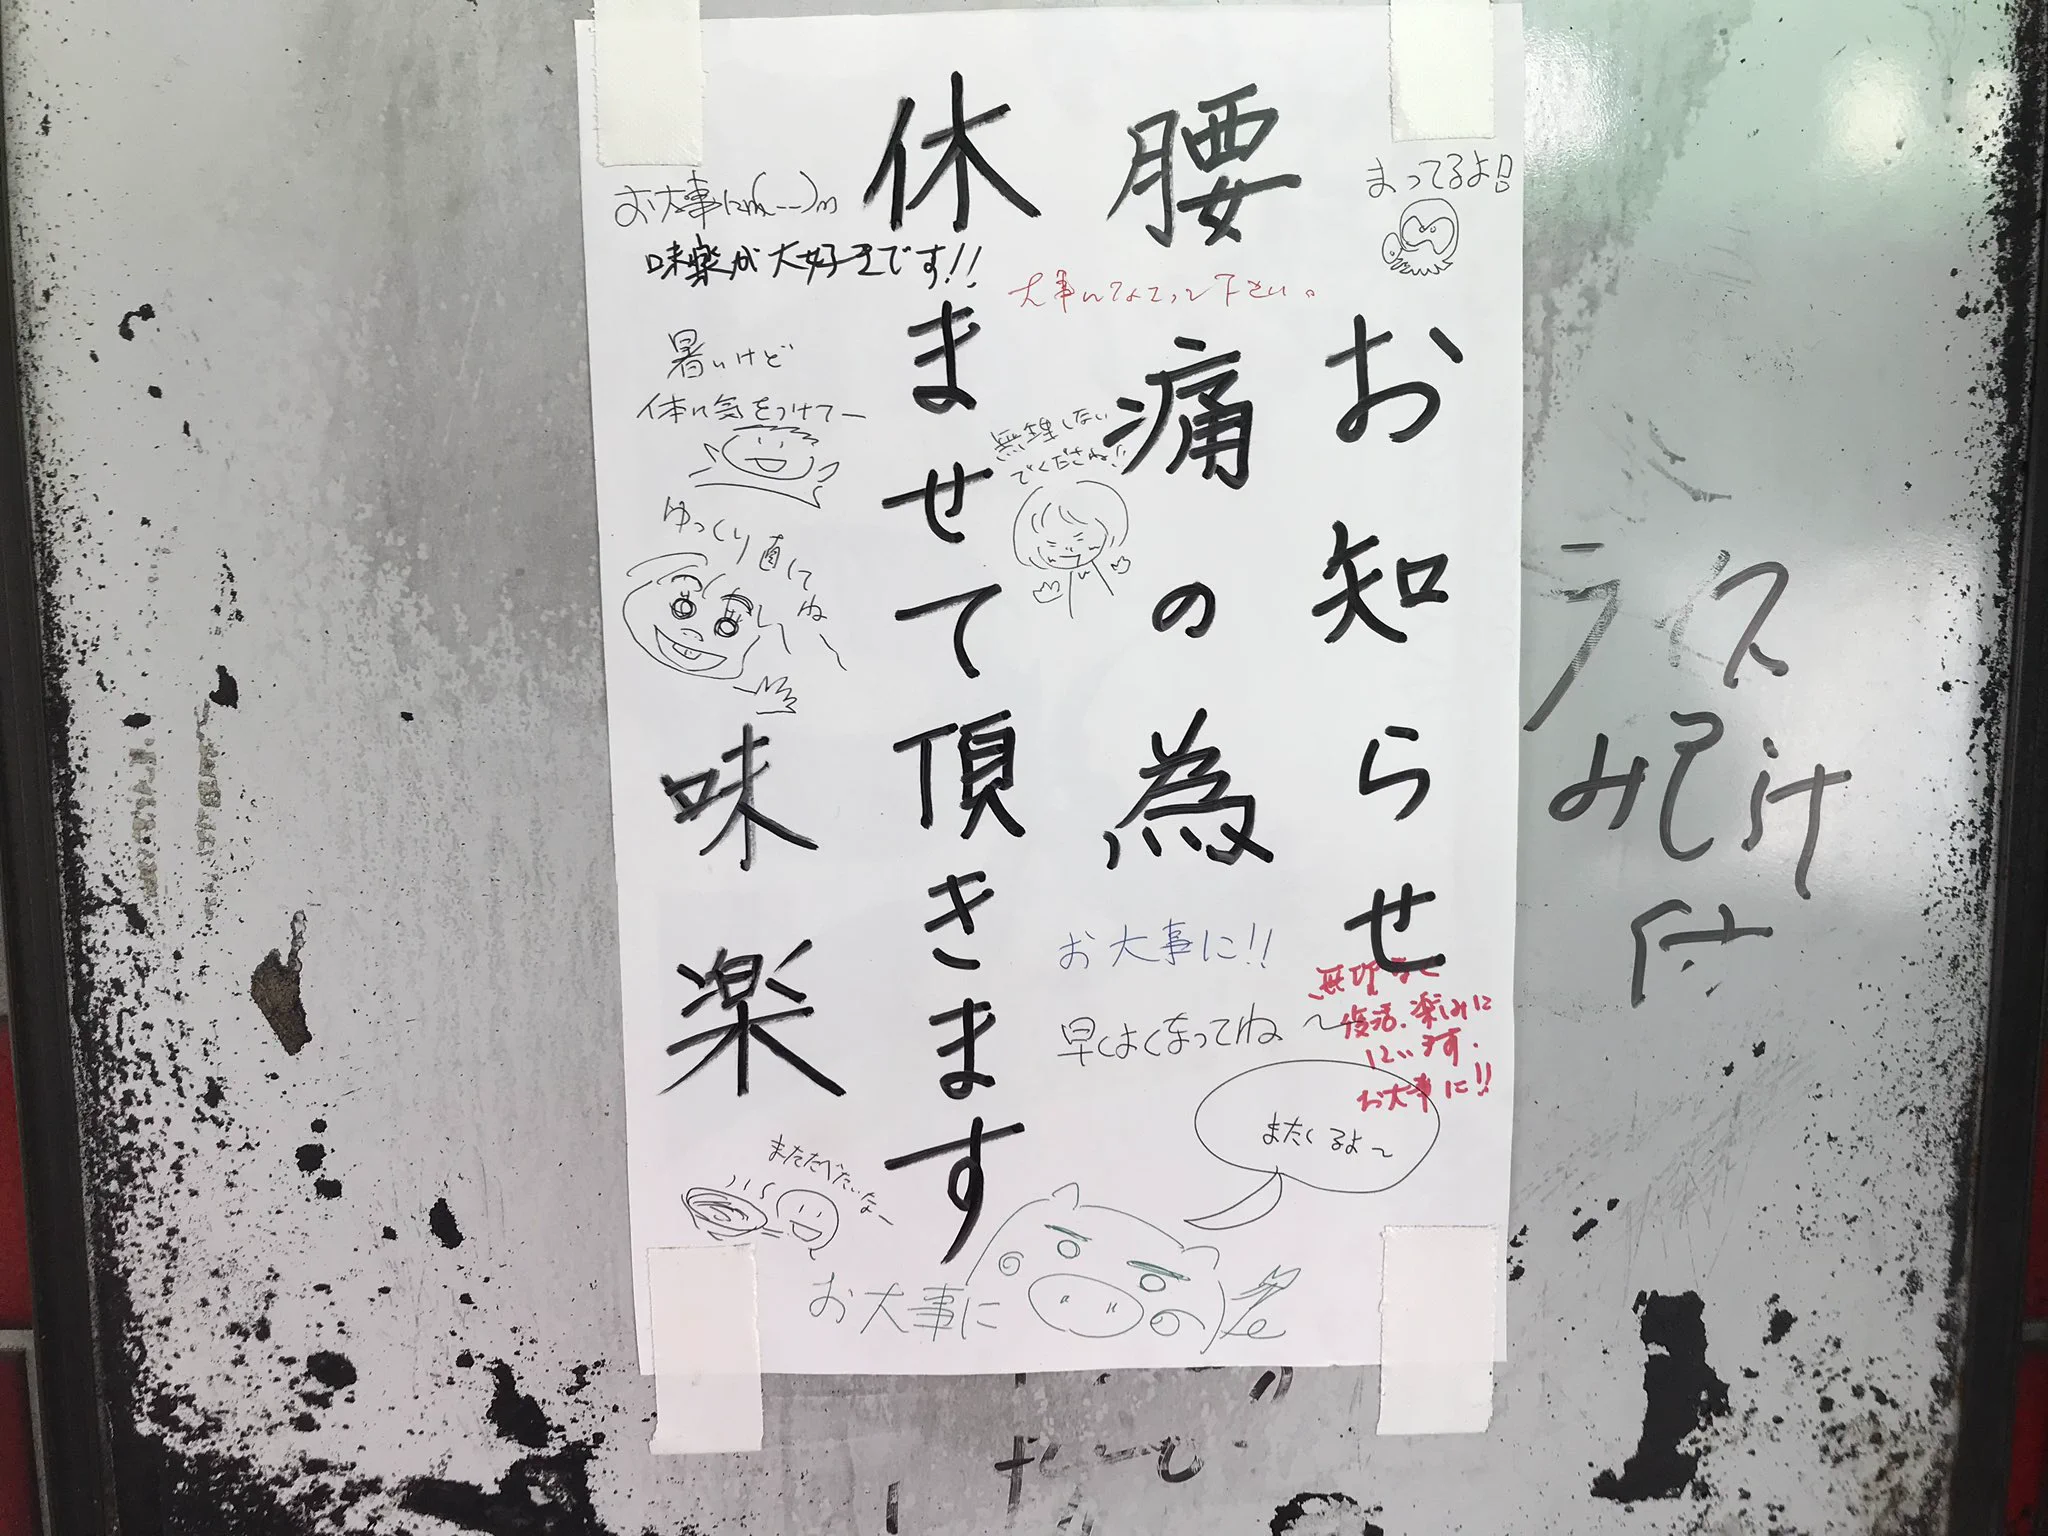 お知らせ
腰痛の為
休ませて頂きます
味楽
まってるよ!!
大事になさって下さい。
お大事にm(_ _)m
味楽が大好きです!!
暑いけど
体に気をつけてー
無理しない
でくださね
ゆっくり直してねー
お大事に!!
早くよくなってねー
無理なく
復活、楽しみに
しています。
お大事に!!
またくるよ〜
またたべたいなー
お大事に
ライス
みそ汁
付